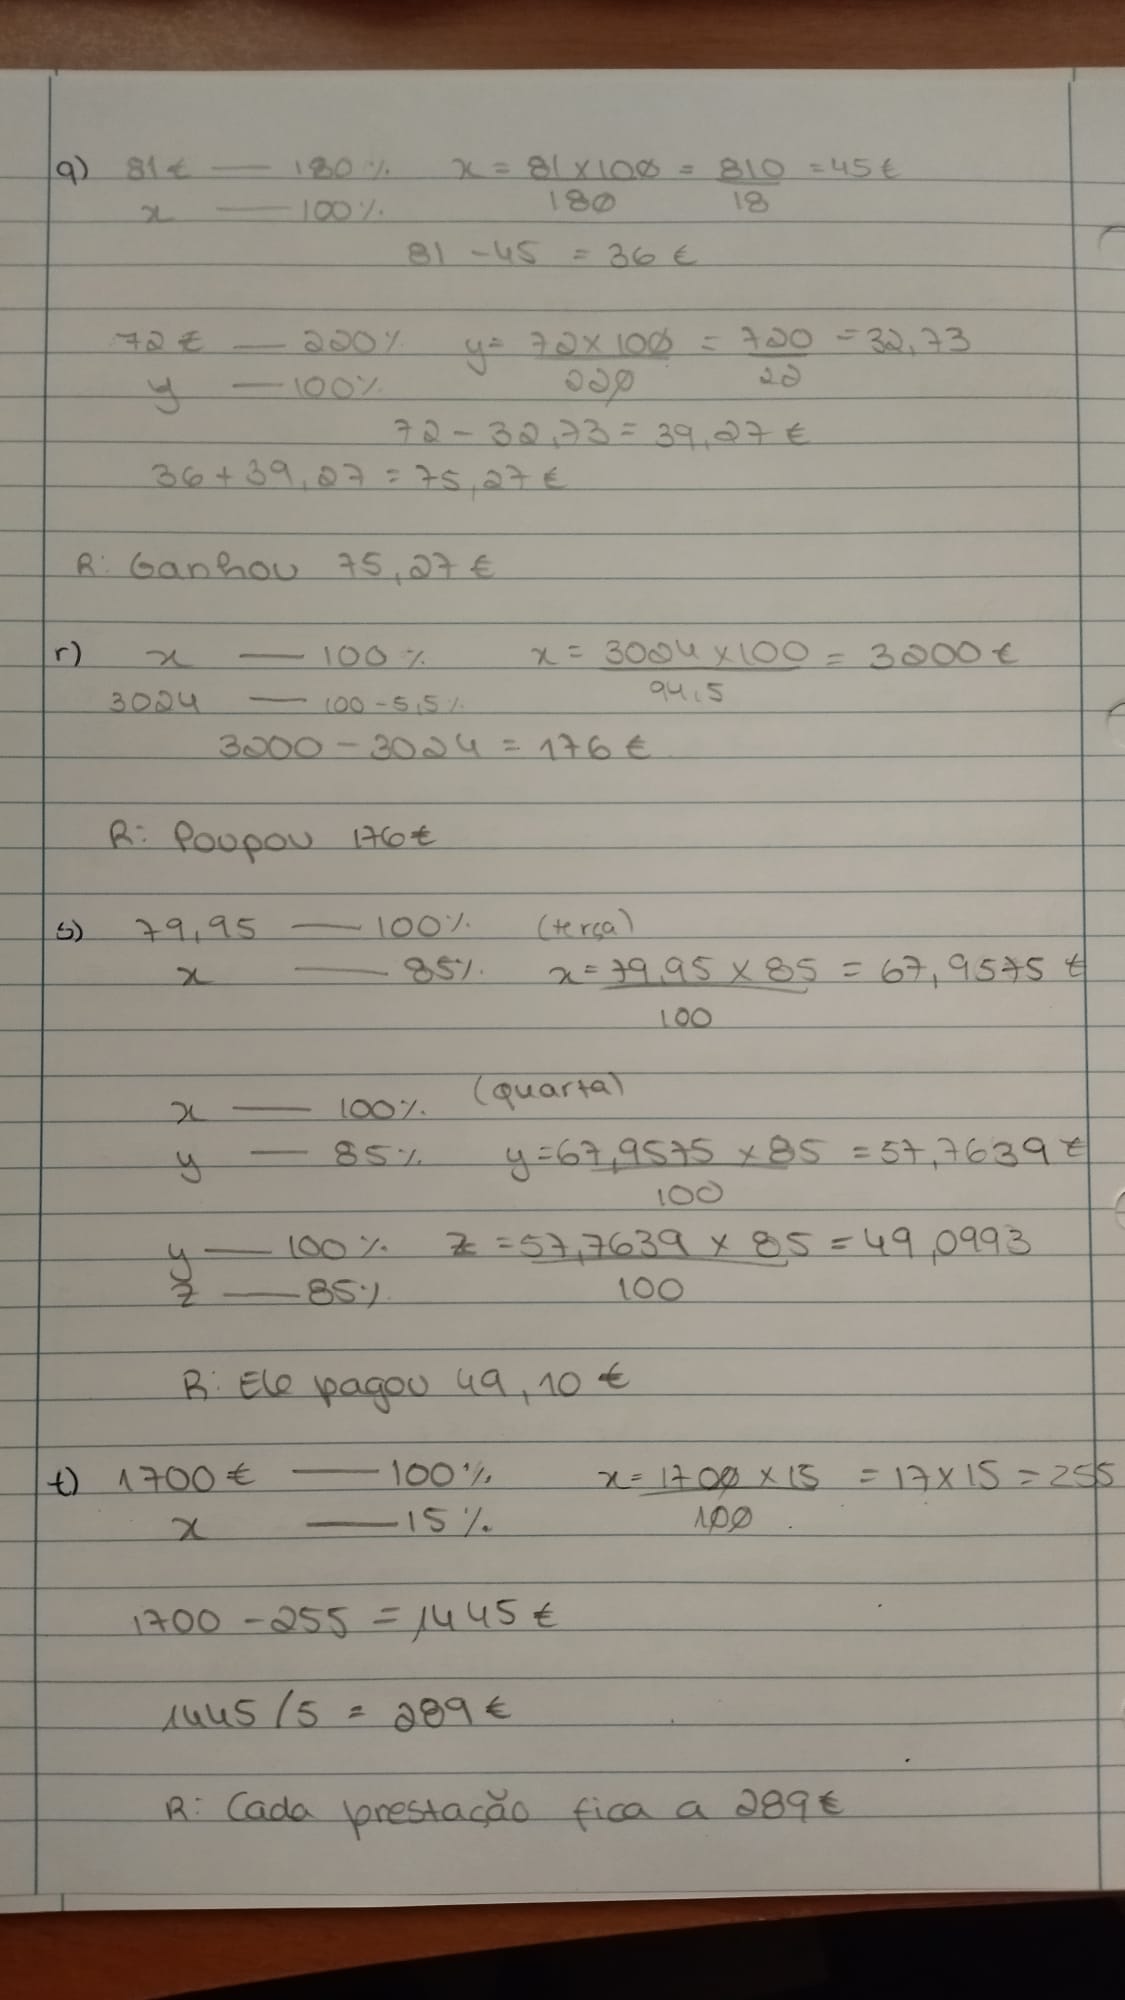 q) 81€ — 180% x = 81 x 100 = 810 = 45€
x — 100% 180 18
81 - 45 = 36 €
72€ — 220% y= 72 x 100 = 720 = 32,73
y — 100% 220 22
72 - 32,73 = 39,27 €
36 + 39,27 = 75,27 €
R: Ganhou 75,27 €
r) x — 100% x = 3024 x 100 = 3200 €
3024 — 100-5,5% 94,5
3200 - 3024 = 176 €
R: Poupou 176€
s) 79,95 — 100% (terça)
x — 85% x = 79,95 x 85 = 67,9575 €
100
x — 100% (quarta)
y — 85% y=67,9575 x 85 = 57,7639 €
100
y — 100% z = 57,7639 x 85 = 49,0993
z — 85% 100
R: Ele pagou 49,10 €
t) 1700€ — 100% x= 1700 x 15 = 17 x 15 = 255
x — 15% 100
1700 - 255 = 1445 €
1445 / 5 = 289 €
R: Cada prestação fica a 289€